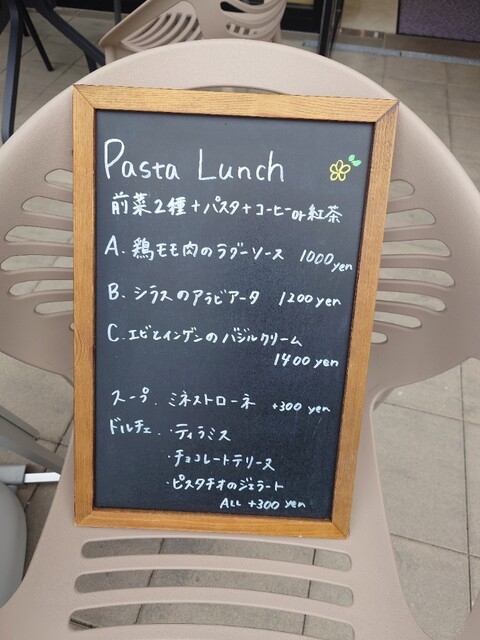 Pasta Lunch
前菜2種+パスタ+コーヒーor紅茶
A. 鶏モモ肉のラグーソース 1000yen
B. シラスのアラビアータ 1200yen
C. エビとインゲンのバジルクリーム
1400yen
スープ. ミネストローネ +300 yen
ドルチェ. ・ティラミス
・チョコレートテリーヌ
・ピスタチオのジェラート
ALL +300 yen